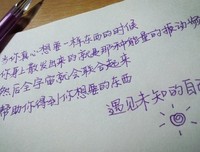 当你真心想要一样东西的时候
你身上散发出来的就是那种能量的振动频
然后全宇宙就会联合起来
帮助你得到你想要的东西
遇见未知的自